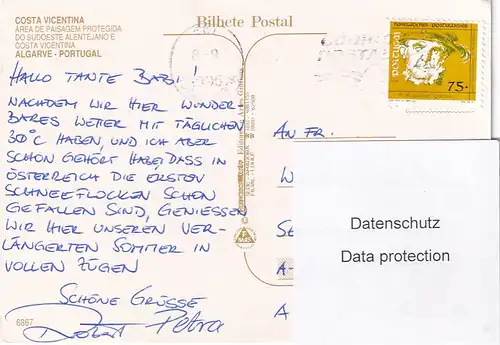 COSTA VICENTINA
ÁREA DE PAISAGEM PROTEGIDA
DO SUDOESTE ALENTEJANO E
COSTA VICENTINA
ALGARVE - PORTUGAL
Bilhete Postal
portugal
75.-
HALLO TANTE BABSI!
NACHDEM WIR HIER WUNDER-
BARES WETTER MIT TÄGLICHEN
30°C HABEN, UND ICH ABER
SCHON GEHÖRT HABE, DASS IN
ÖSTERREICH DIE ERSTEN
SCHNEEFLOCKEN SCHON
GEFALLEN SIND, GENIESSEN
WIR HIER UNSEREN VER-
LÄNGERTEN SOMMER IN
VOLLEN ZÜGEN
SCHÖNE GRÜSSE
Robert Petra
6867
AN FR.
W
SE
A-
A
Datenschutz
Data protection